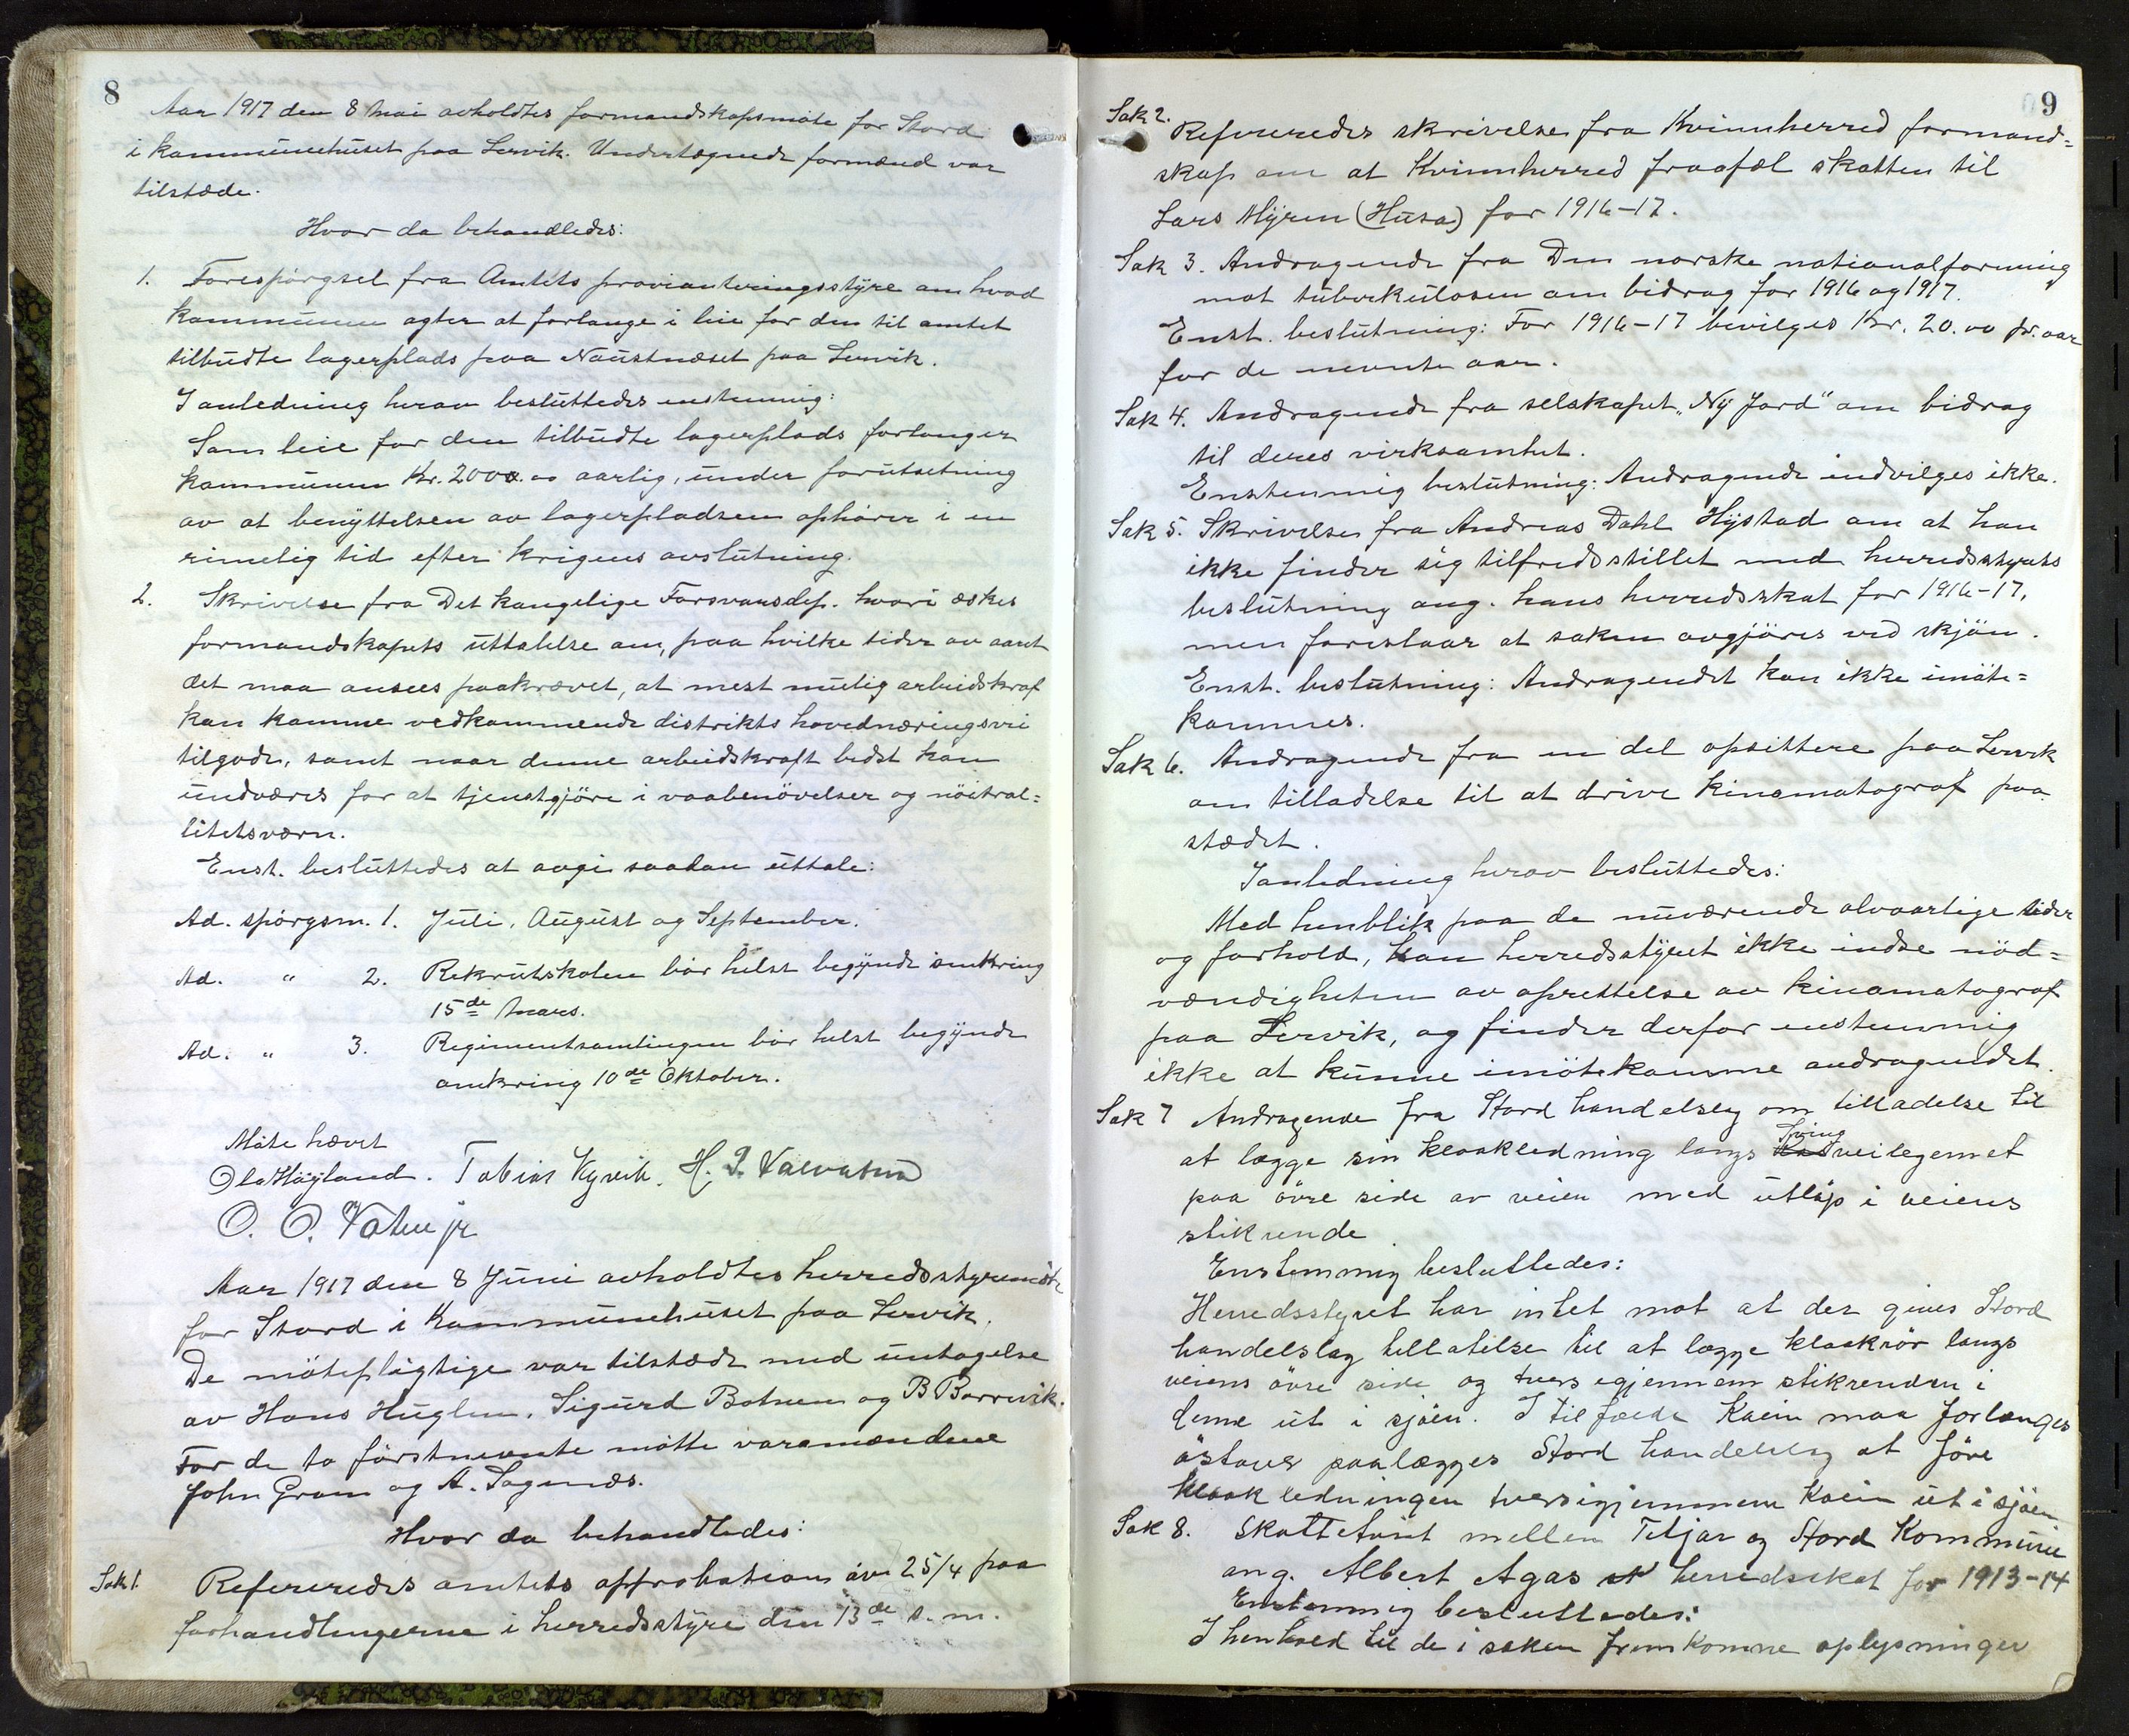 8
Aar 1917 den 8 Mai avholdtes formandskapsmöte for Stord
i kommunehuset paa Lervik. Undertegnede formænd var
tilstæde.
Hvor da behandledes:
1. Forespörgsel fra Amtets provianteringsstyre om hvad
kommunen agter at forlange i leie for den til amtet
tilbudte lagerplads paa Naustnæset paa Lervik.
I anledning herav besluttedes enstemmig:
Som leie for den tilbudte lagerplads forlanger
kommunen Kr. 2000.00 aarlig, under forutsetning
av at benyttelsen av lagerpladsen ophörer i en
rimelig tid efter krigens avslutning.
2. Skrivelse fra Det kongelige Forsvarsdep. hvori æskes
formandskapets uttalelse om, paa hvilke tider av aaret
det maa ansees paakrævet, at mest mulig arbeidskraf
kan komme vedkommende distrikts hovednæringsvei
tilgode, samt naar denne arbeidskraft bedst kan
undværes for at tjenstgjöre i vaabenövelser og nöitral=
litetsværn.
Enst. besluttedes at avgi saadan uttale:
Ad. spörgsm. 1. Juli, August og September.
Ad. " 2. Rekrutskolen bör helst begynde omkring
15de Mars.
Ad. " 3. Regimentsamlingen bör helst begynde
omkring 10de Oktober.
Möte hævet
Ola Högland. Tobias Kyvik. H. P. Valvatna
O. O. Vatne jr
Aar 1917 den 8 Juni avholdtes herredsstyremöte
for Stord i Kommunehuset paa Lervik.
De mötepligtige var tilstæde med untagelse
av Hans Huglen, Sigurd Botnen og B Borrevik.
For de to förstnevnte mötte varamændene
John Gram og A. Sagenes.
Hvor da behandledes:
Sak 1. Refereredes amtets approbation av 25/4 paa
forhandlingerne i herredsstyre den 13de s. m.
9
Sak 2.
Refereredes skrivelse fra Kvinnherred formand=
skap om at Kvinnherred frafal skatten til
Lars Myren (Husa) for 1916-17.
Sak 3. Andragende fra Den norske nationalforening
mot tuberkulosen om bidrag for 1916 og 1917.
Enst. beslutning: For 1916-17 bevilges Kr. 20.00 pr. aar
for de nevnte aar.
Sak 4. Andragende fra selskapet "Ny Jord" om bidrag
til deres virksomhet.
Enstemmig beslutning: Andragende indvilges ikke.
Sak 5. Skrivelse fra Andreas Dahl Hystad om at han
ikke finder sig tilfredsstillet med herredsstyrets
beslutning ang. hans herredsskat for 1916-17,
men foreslaar at saken avgjöres ved skjön.
Enst. beslutning: Andragendet kan ikke imöte=
kommes.
Sak 6. Andragende fra en del opsittere paa Lervik
om tilladelse til at drive kinematograf paa
stædet.
I anledning herav besluttedes:
Med henblik paa de nuværende alvorlige tider
og forhold, kan herredsstyret ikke indse nöd=
vændigheten av oprettelse av kinomatograf
paa Lervik, og finder derfor enstemmig
ikke at kunne imötekomme andragendet.
Sak 7 Andragende fra Stord handelslag om tilladelse til
at lægge sin kloakledning langs veilegemet
paa övre side av veien med utlöp i veiens
stikrende
Enstemmig besluttedes:
Herredsstyret har intet mot at der gives Stord
handelslag tillatelse til at lægge kloakrör langs
veiens övre side og tvers igjennem stikrenden i
denne ut i sjöen. I tilfælde Kaien maa forlænges
östover paalægges Stord handelslag at före
kloakledningen tversigjennem Kaien ut i sjöen
Sak 8. Skattetvist mellem Feljar og Stord Kommune
ang. Albert Agas herredsskat for 1913-14
Enstemmig besluttedes:
I henhold til de i saken fremkomne oplysninger